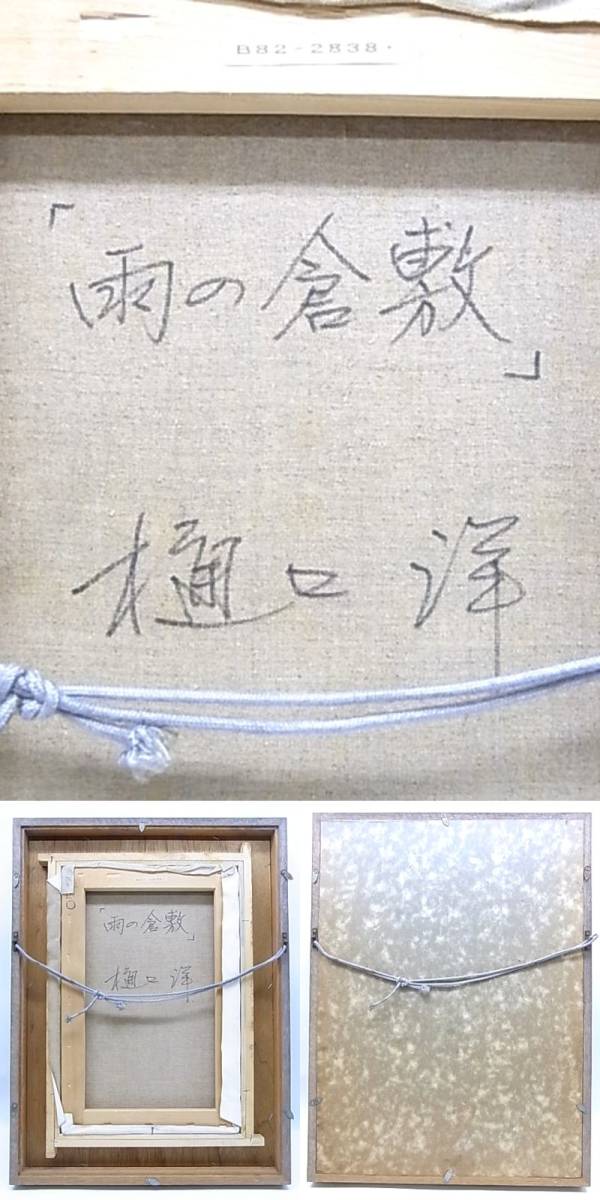 B82-2838.
「雨の倉敷」
樋口洋
「雨の倉敷」
樋口洋